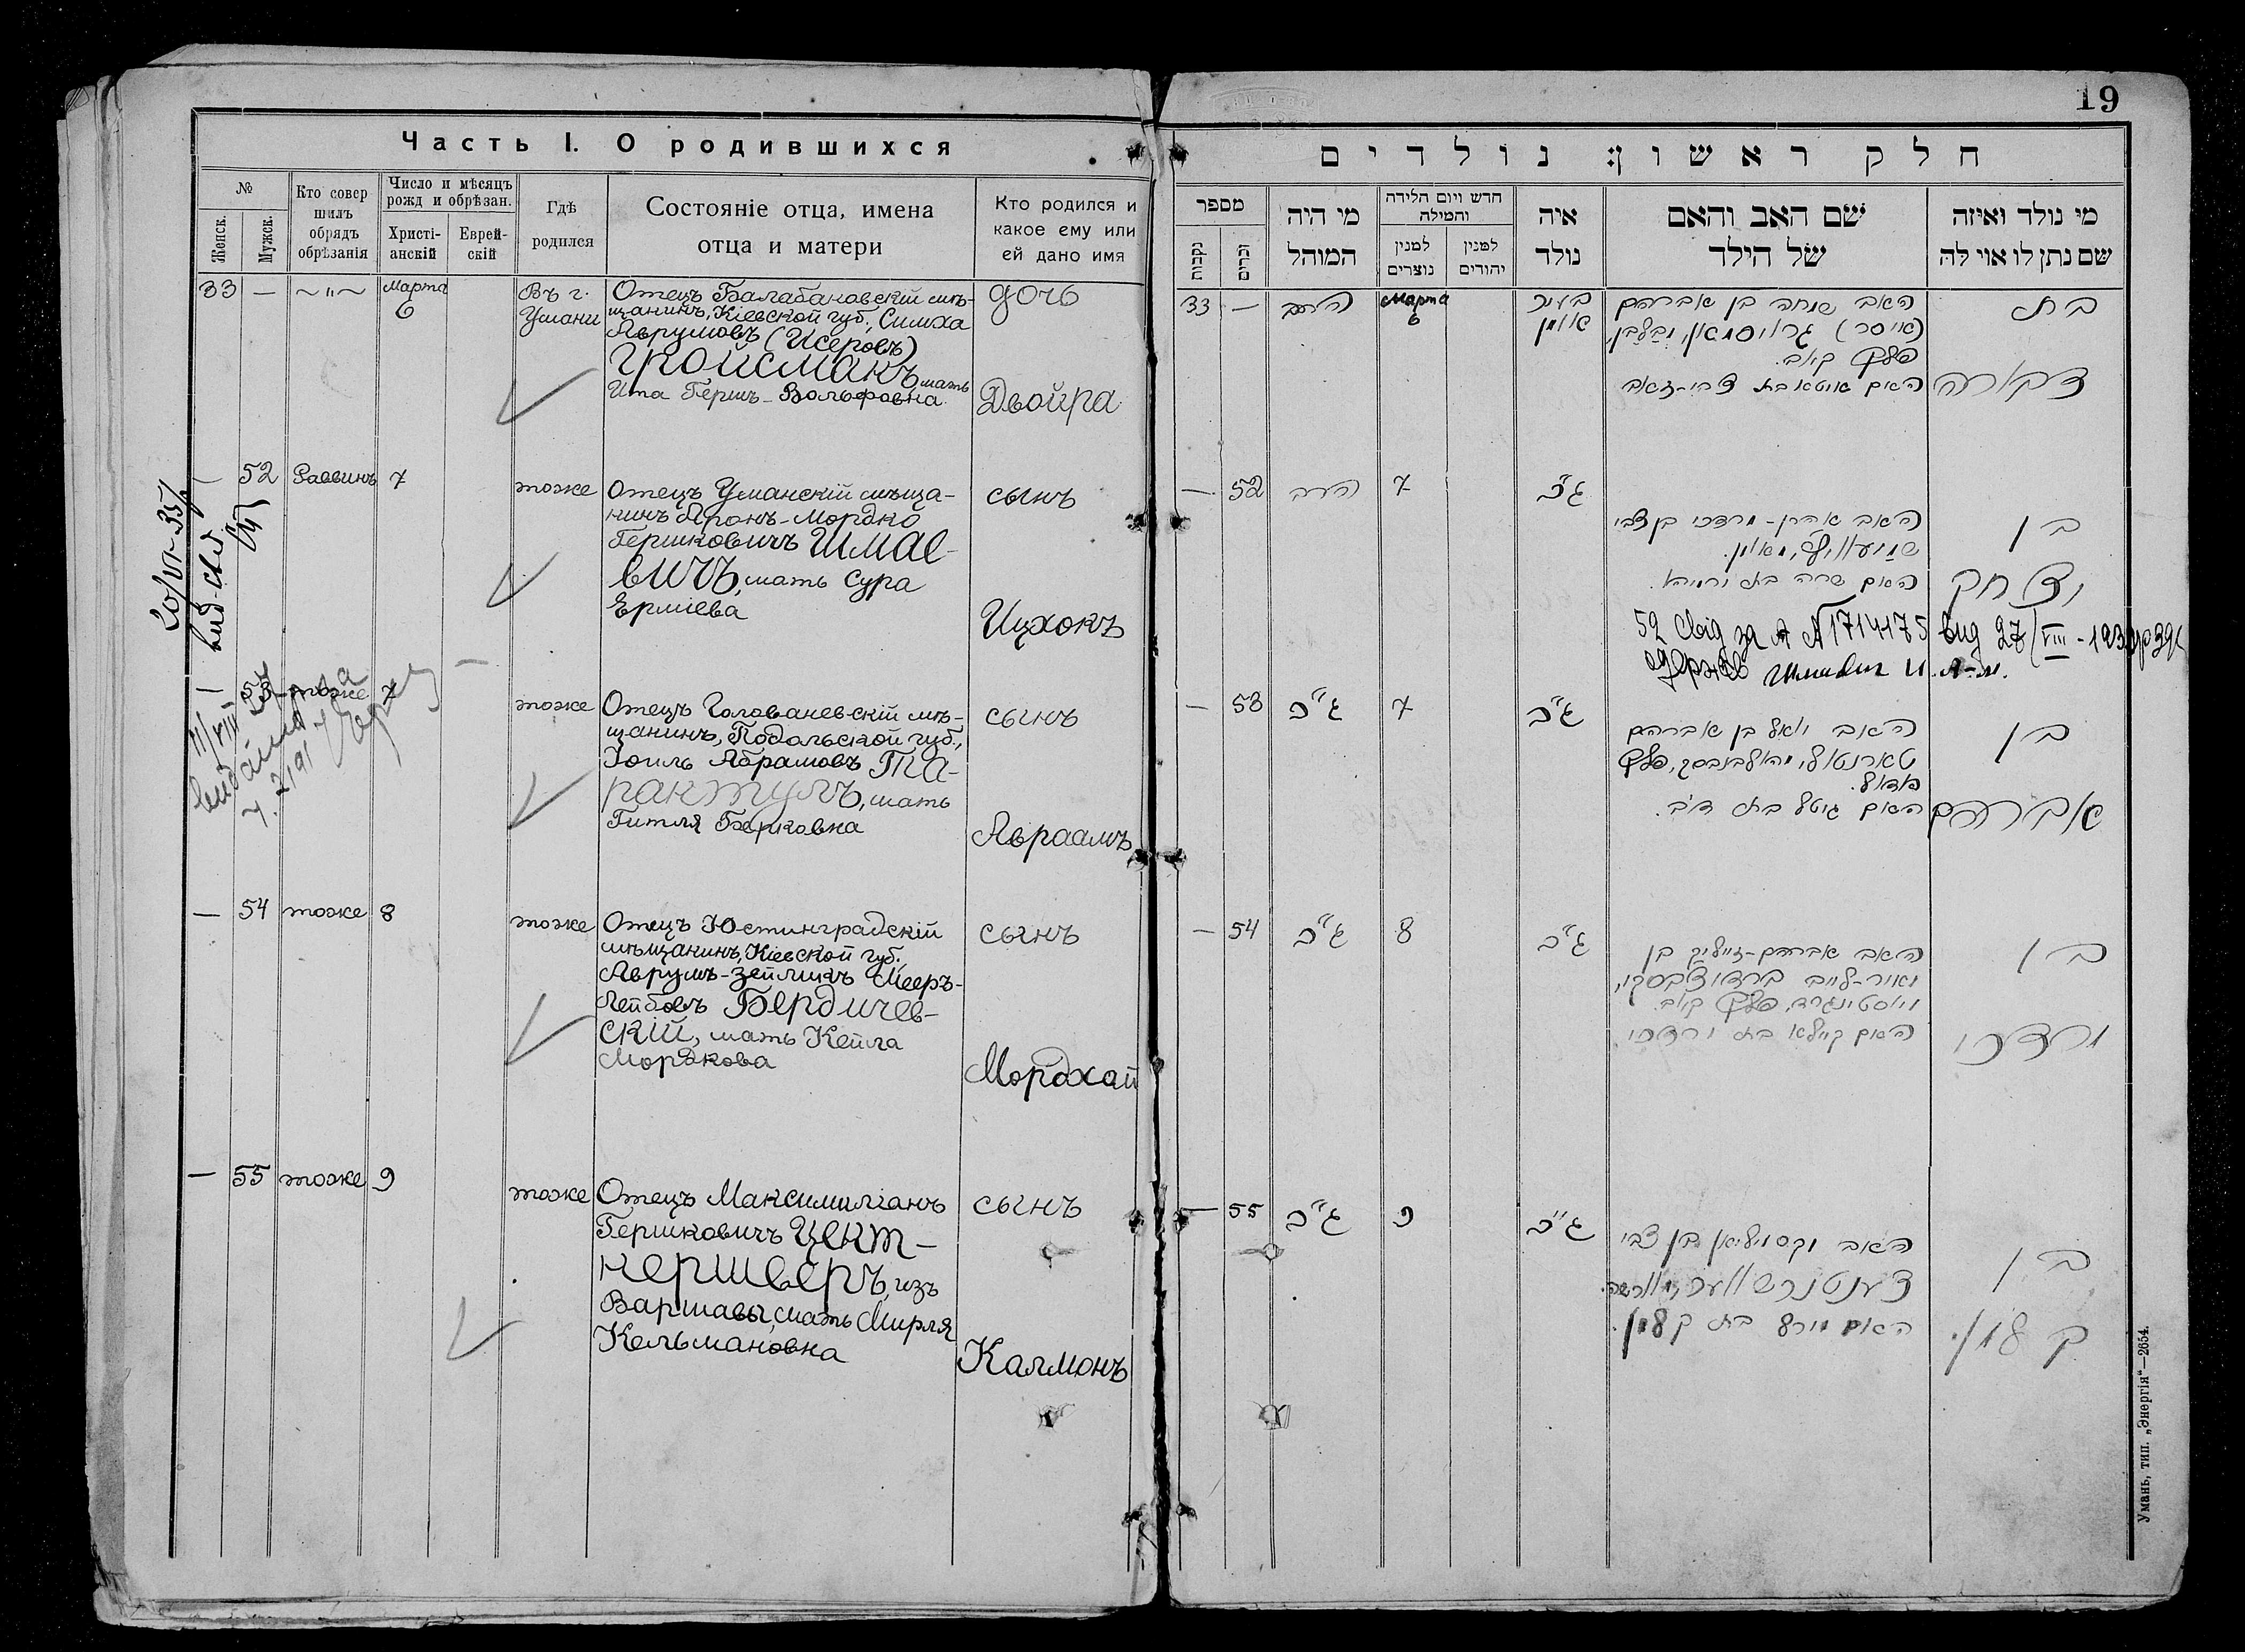 Часть I. О родившихся
№
Женск.
Мужск.
Кто совер
шилъ
обрядъ
обрѣзанія
Число и мѣсяцъ
рожд и обрѣзан.
Христі-
анскій
Еврей-
скій
Гдѣ
родился
Состояніе отца, имена
отца и матери
Кто родился и
какое ему или
ей дано имя
33 — ~"~ Марта
6
Въ г.
Умани
Отецъ Балабановскій мѣ-
щанинъ, Кіевской губ., Симха
Аврумовъ (Исеровъ)
Гройсманъ, мать
Ита Гершъ-Вольфовна
дочь
Двойра
— 52 Раввинъ 7 тоже
Отецъ Уманскій мѣща-
нинъ Аронъ-Мордко
Гершковичъ Шмае-
вичъ, мать Сура
Ерміева
сынъ
Ицхокъ
— 53 тоже 7 тоже
Отецъ Голованевскій мѣ-
щанинъ, Подольской губ.,
Іоиль Абрамовъ Та-
рактулъ, мать
Гитля Берковна
сынъ
Авраамъ
— 54 тоже 8 тоже
Отецъ Юстинградскій
мѣщанинъ, Кіевской губ.
Аврумъ-Зейликъ Мееръ-
Лейбовъ Бердичев-
скій, мать Кейла
Мордкова
сынъ
Мордхай
— 55 тоже 9 тоже
Отецъ Максимиліанъ
Гершковичъ Цент-
нершверъ, изъ
Варшавы, мать Мирля
Кельмановна
сынъ
Калмонъ
20/VI-35
11/VIII
19
חלק ראשון: נולדים
מספר
נקבות
זכרים
מי היה
המוהל
חדש ויום הלידה
והמילה
למנין
נוצרים
למנין
יהודים
איה
נולד
שם האב והאם
של הילד
מי נולד ואיזה
שם נתן לו אוי לה
33 — הרב Марта
6
בעיר
אומן
האב שמחה בן אברהם
(איסר) גרויסמאן,
פלך קיוב.
האם איטא בת צבי-זאב
בת
דבורה
— 52 הרב 7 ג"כ
האב אהרן-מרדכי בן צבי
האם שרה בת ירמיהו.
בן
יצחק
52 Свід за А №1714175 вид 27/VIII-193
одержав Шмаевич И. А-М.
— 53 ג"כ 7 ג"כ
האב יואל בן אברהם
פאדאל.
האם גיטל בת דוב.
בן
אברהם
— 54 ג"כ 8 ג"כ
האב אברהם-זייליק בן
מאיר-לייב ברדיצבסקי,
יוסטינגרד, פלך קיוב.
האם קיילא בת מרדכי
בן
מרדכי
— 55 ג"כ 9 ג"כ
האב מקסימיליאן בן צבי
צענטנרשווער, מווארשה.
האם מירל בת קלמן.
בן
קלמן.
Умань, тип. „Энергія“—2654.